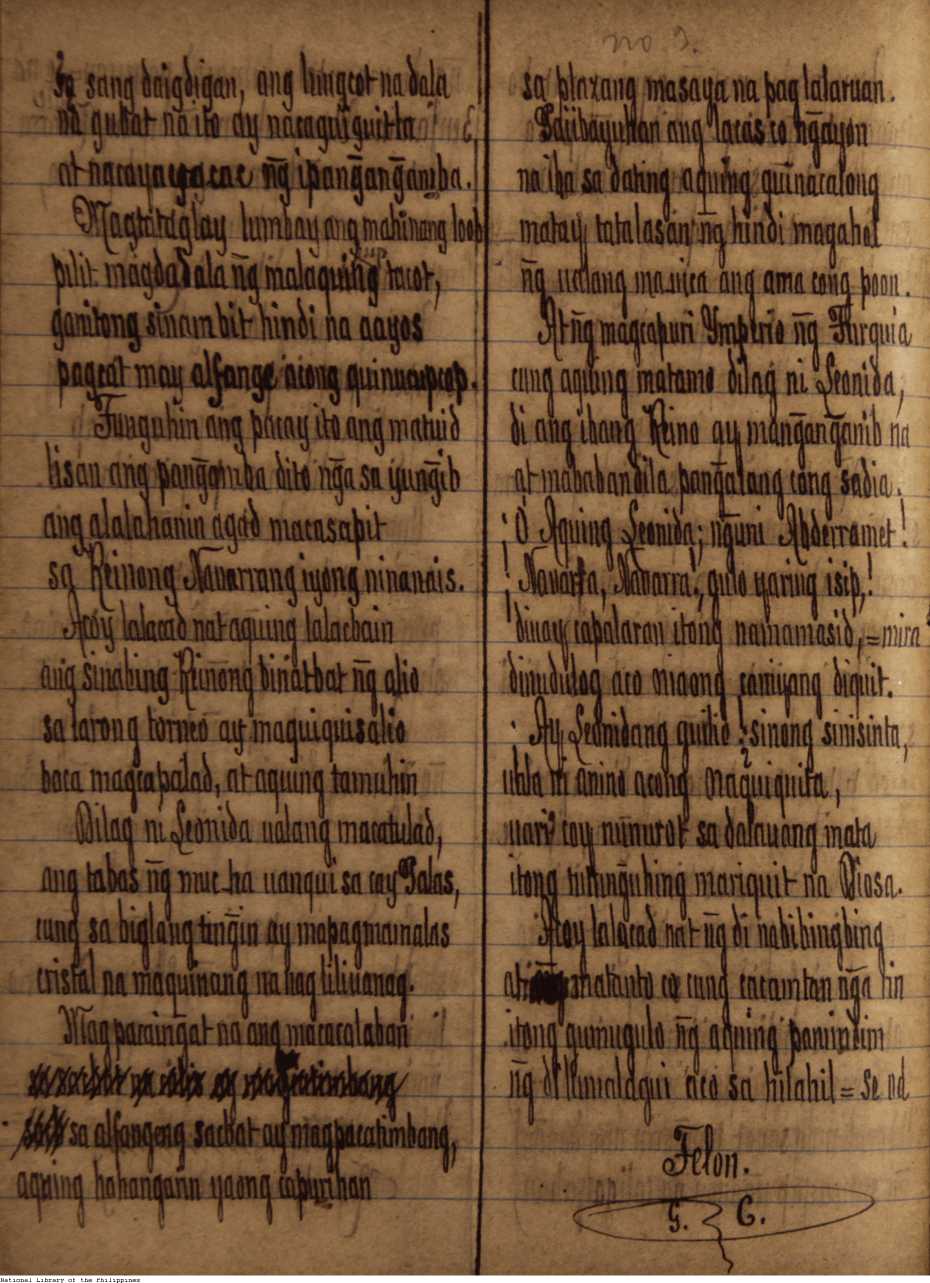 Sa sang daigdigan, ang lungcot na dala
na gubat na ito ay nacaguiguitla
at nacaya n͠g ipan͠gan͠gamba.
Magtataglay lumbay ang mahinang loob
pilit magdadala n͠g malaquing tacot,
ganitong sinambit hindi na aayos
pagcat may alfange acong quinucupcop.
Tunguhin ang pacay ito ang matuid
lisan ang pan͠gamba dito n͠ga sa iyun͠gib
ang alalahanin agad macasapit
sa Reinong Navarrang iyong ninanais.
Acoy lalacad nat aquing lalacbain
ang sinabing Reinong binatbat n͠g alio
sa larong torneo ay maquiquisalio
baca magcapalad, at aquing tamuhin
Dilag ni Leonida ualang macatulad,
ang tabas n͠g muc-ha uanqui sa cay Palas,
cung sa biglang tin͠gin ay mapagmamalas
cristal na maquinang na nag liliuanag.
Mag parain͠gat na ang macacalaban
sa alfangeng sacbat ay magpacatimbang,
aquing hahangarin yaong capurihan
no 3.
sa plazang masaya na pag lalaruan.
Pdiibayuhan ang lacas co n͠gayon
na iba sa dating aquing quinacalong
matay tatalasan n͠g hindi magahol
n͠g ualang ang ama cong poon.
At n͠g magcapuri Ymperio n͠g Turquia
cung aquing matamo dilag ni Leonida,
di ang ibang Reino ay man͠gan͠ganib na
at mababandila pan͠galang cong sadia.
¡O Aquing Leonida; n͠guni Abderramet!
¡Navarra, Navarra!, gulo yaring isip,!
dinay capalaran itong namamasid, = mira
dinudulog aco niaong caniyang diquit.
Ay Leonidang guilio ¿sinong sinisinta,
uala ni anino acong naquiquita,
uari coy nunurot sa dalauang mata
itong tutun͠guhing mariquit na Diosa.
Acoy lalacad nat n͠g di nabibingbing
at matanto co cung cacamtan n͠ga rin
itong gumugulo n͠g aquing panimdim
n͠g di lumalagui aco sa hilahil = Se nd
Telon.
G. C.
National Library of the Philippines